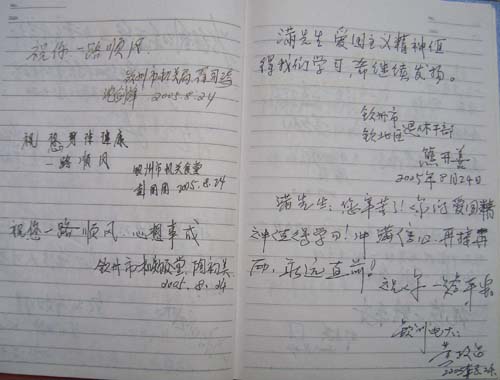 祝你一路顺风
钦州市机关局
2005.8.24
祝您身体健康
一路顺风
钦州市机关食堂
2005.8.24
祝您一路顺风 心想事成
钦州市机关饭堂
2005.8.24
满先生爱国主义精神值
得我们学习,希继续发扬。
钦州市
钦北区退休干部
熊开善
2005年8月24日
满先生:您辛苦了!你的爱国精
神值得学习!冲满信心,再接再
历,永远直前!
祝你一路平安
钦州电大:
2005年8.24.